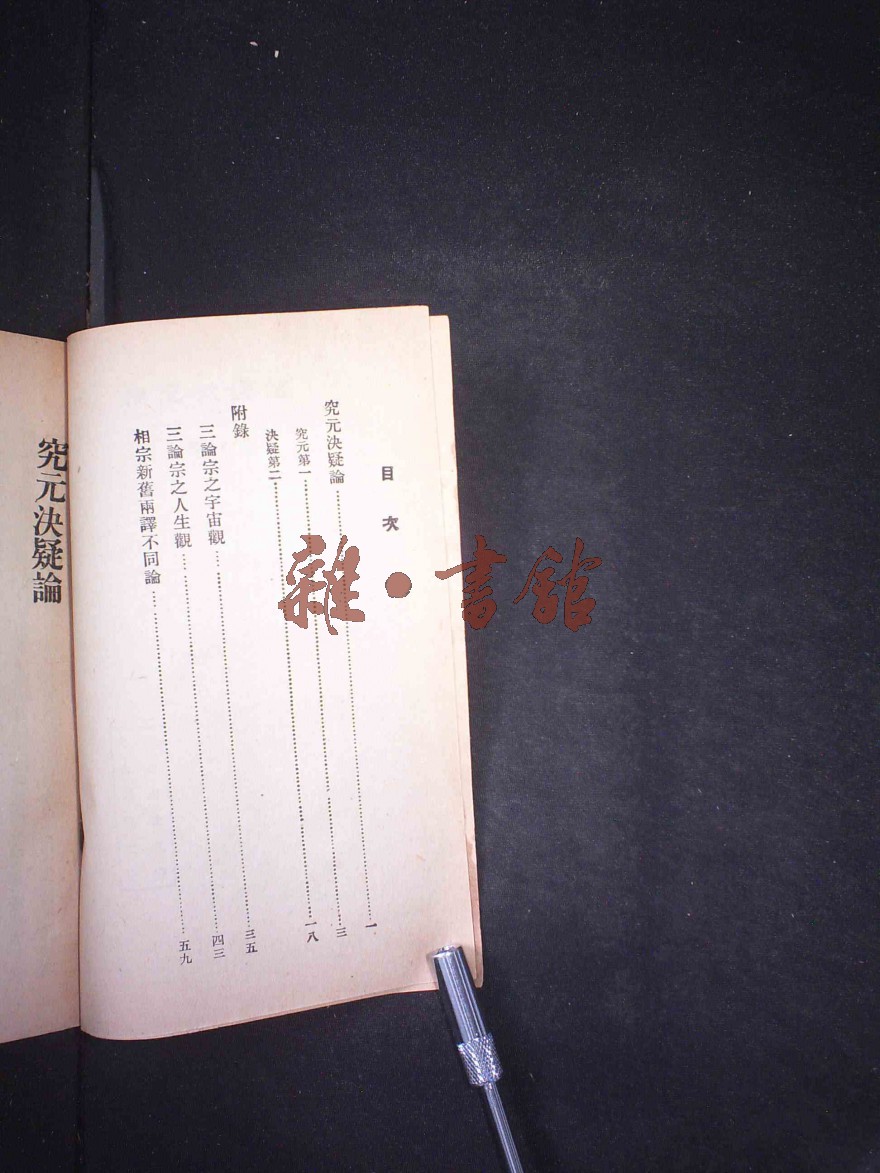 目次
究元決疑論……一
究元第一……三
決疑第二……一八
附錄
三論宗之宇宙觀……三五
三論宗之人生觀……四三
相宗新舊兩譯不同論……五九
究元決疑論
雜·書館